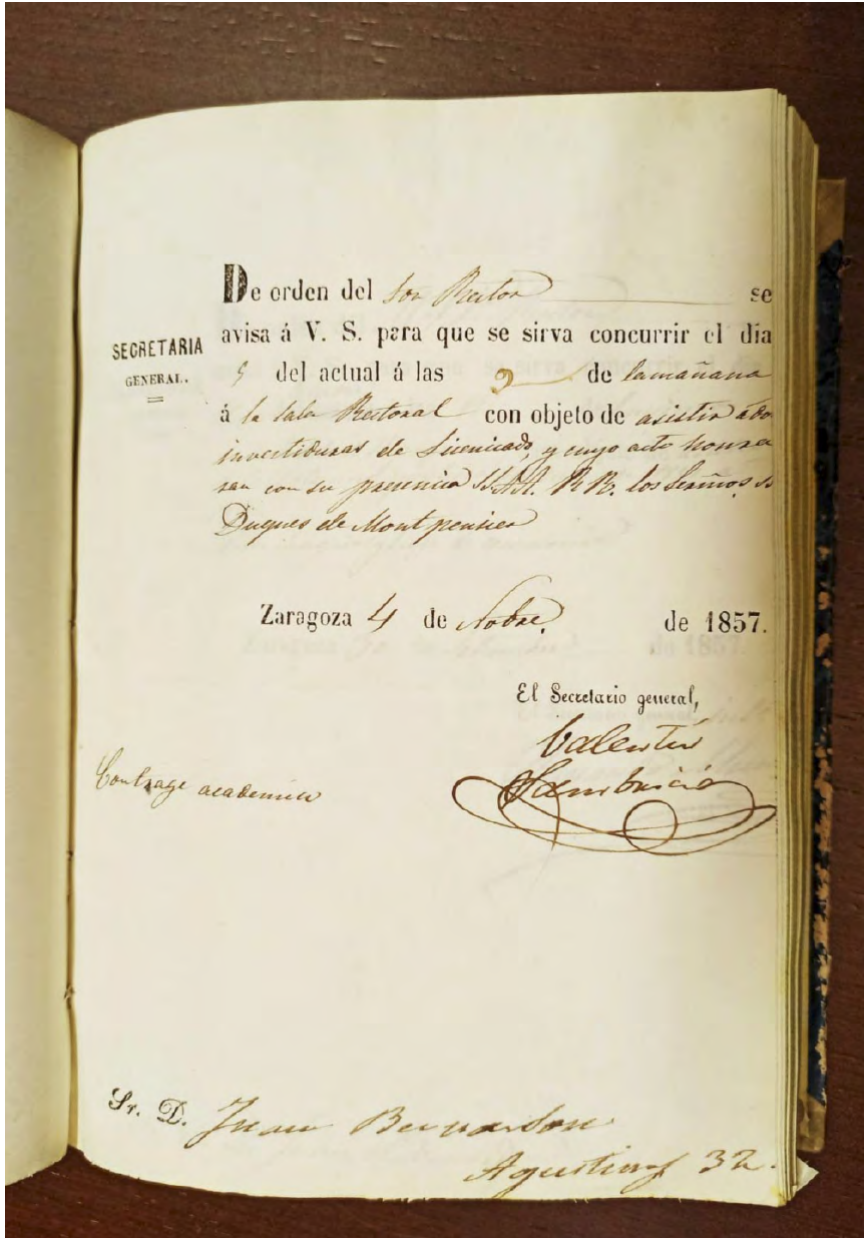 De orden del Sor Rector se
SECRETARIA
GENERAL.
avisa á V. S. para que se sirva concurrir el día
5 del actual á las 9 de la mañana
á la Sala Rectoral con objeto de asistir á dos
investiduras de Licenciado, y cuyo acto honra
ran con su presencia SS.AA. RR. los Sermos. Ss
Duques de Montpensier
Zaragoza 4 de Nobre. de 1857.
El Secretario general,
Valentin
Sambricio
Con trage academico
Sr. D. Juan
Agustinos 32.